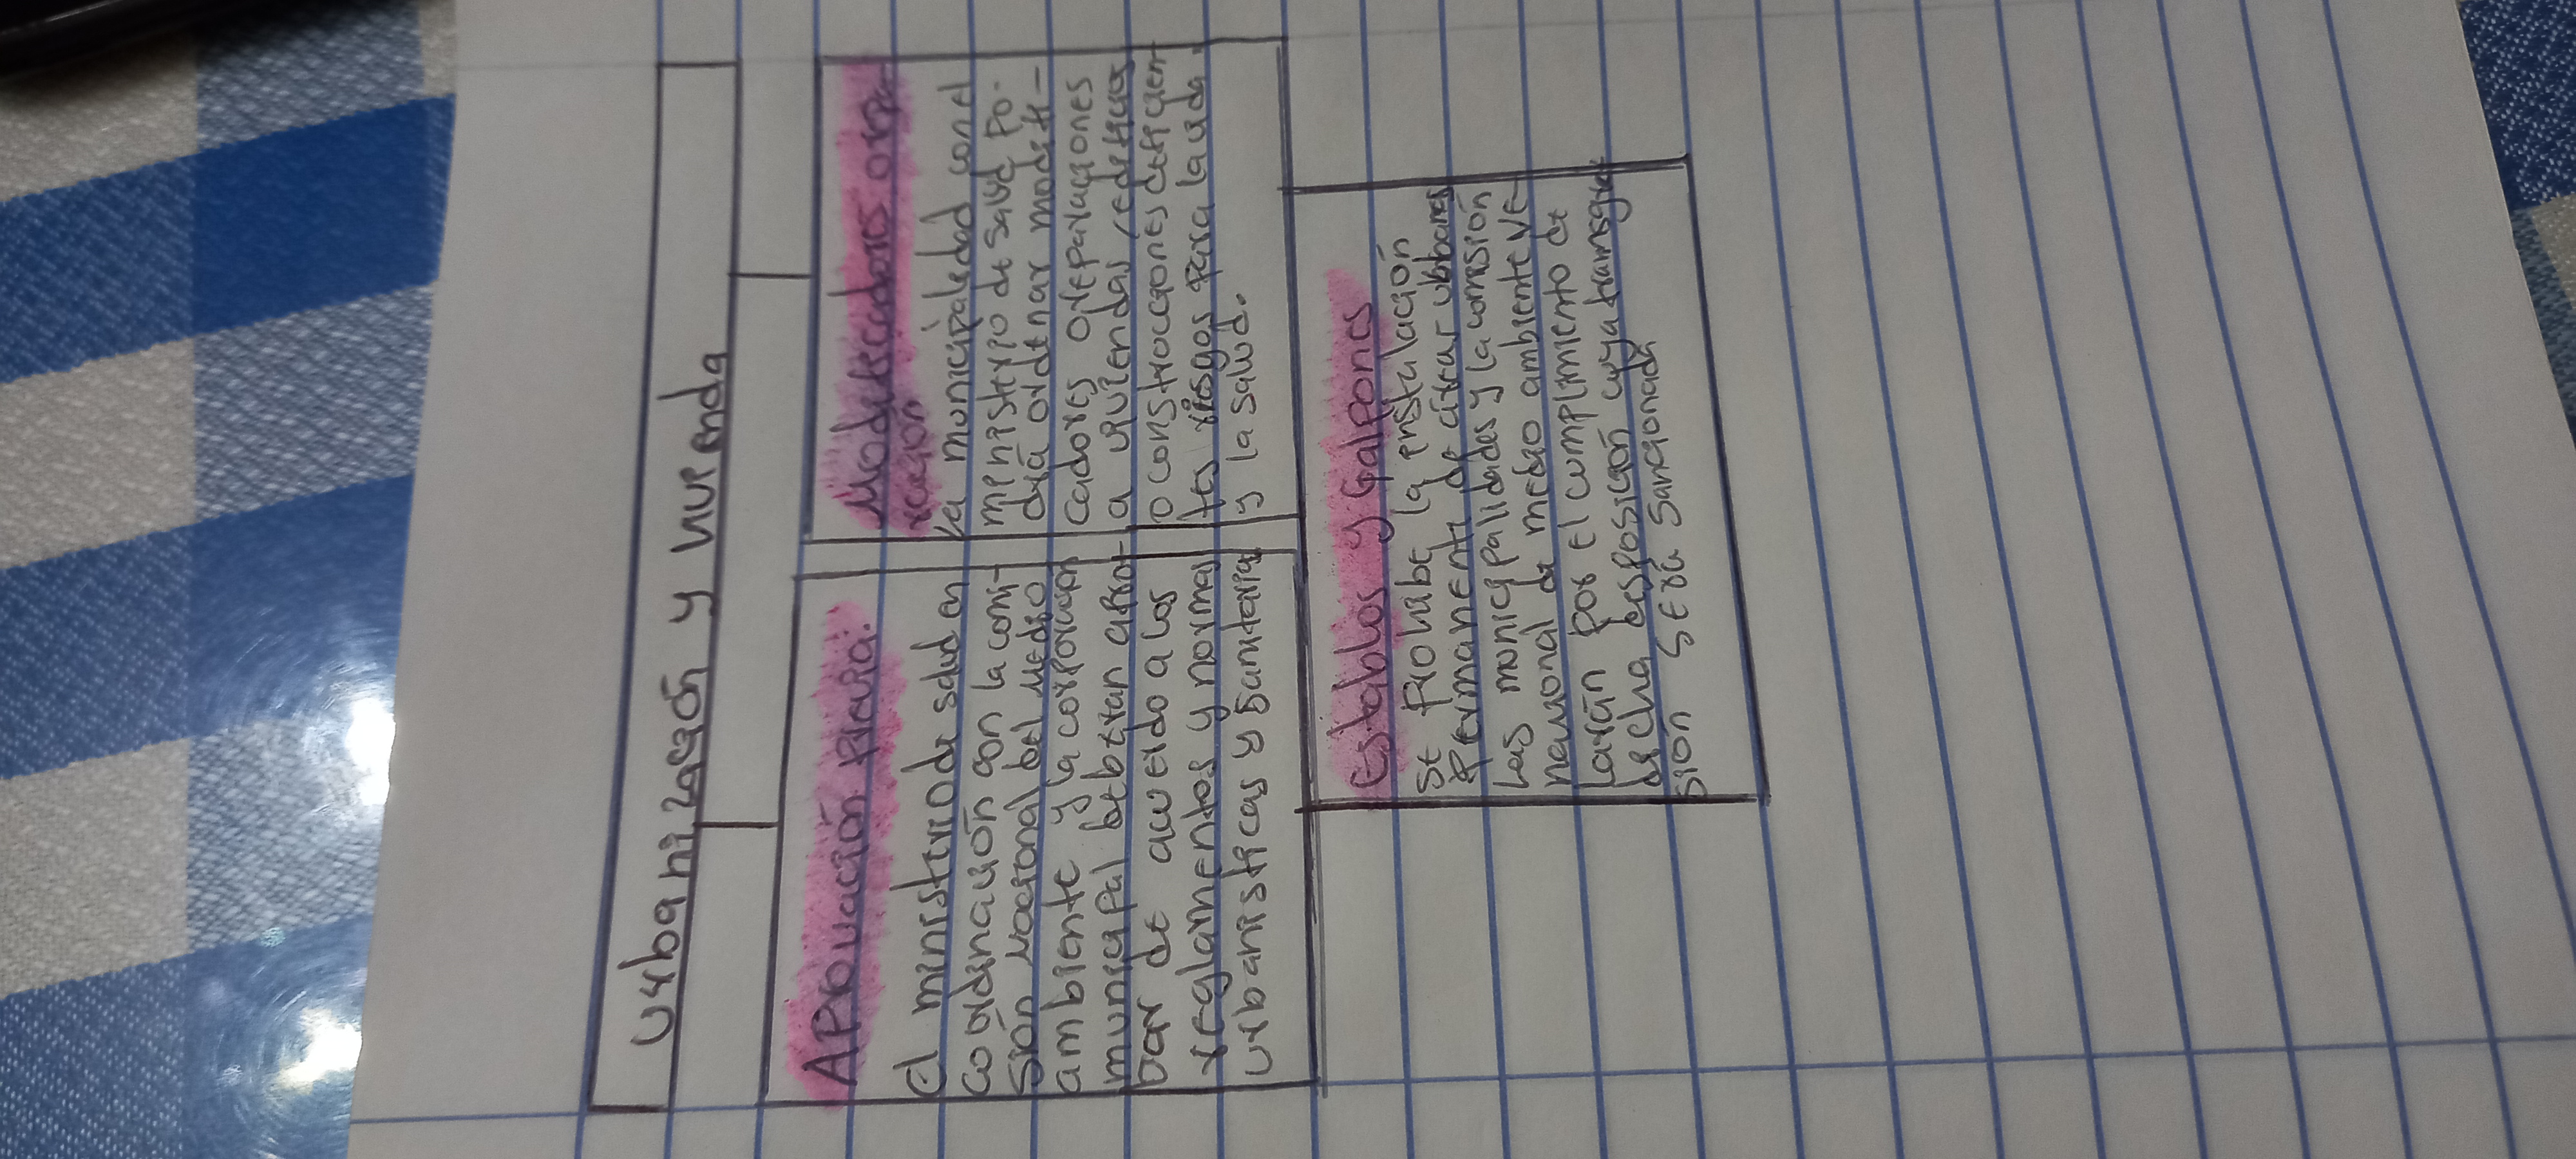 Urbanización y vivienda
Aprovación Previa:
El ministerio de salud en
coordinación con la comi-
sión nacional del medio
ambiente y la corporación
municipal deberan apro-
bar de acuerdo a los
reglamentos y normas
urbanisticas y Sanitarias
Modificadores o repa-
ración
La municipalidad con el
ministerio de salud po-
drá ordenar modifi-
cadores o reparaciones
a viviendas, edificios
o construcciones deficien-
tes riesgos para la vida
y la salud.
Establos y Galpones
Se Prohibe la instalación
Permanente de areas urbanas
Las municipalidades y la comisión
nacional de medio ambiente ve-
larán por el cumplimiento de
dicha disposición cuya transgre
sión será Sancionada